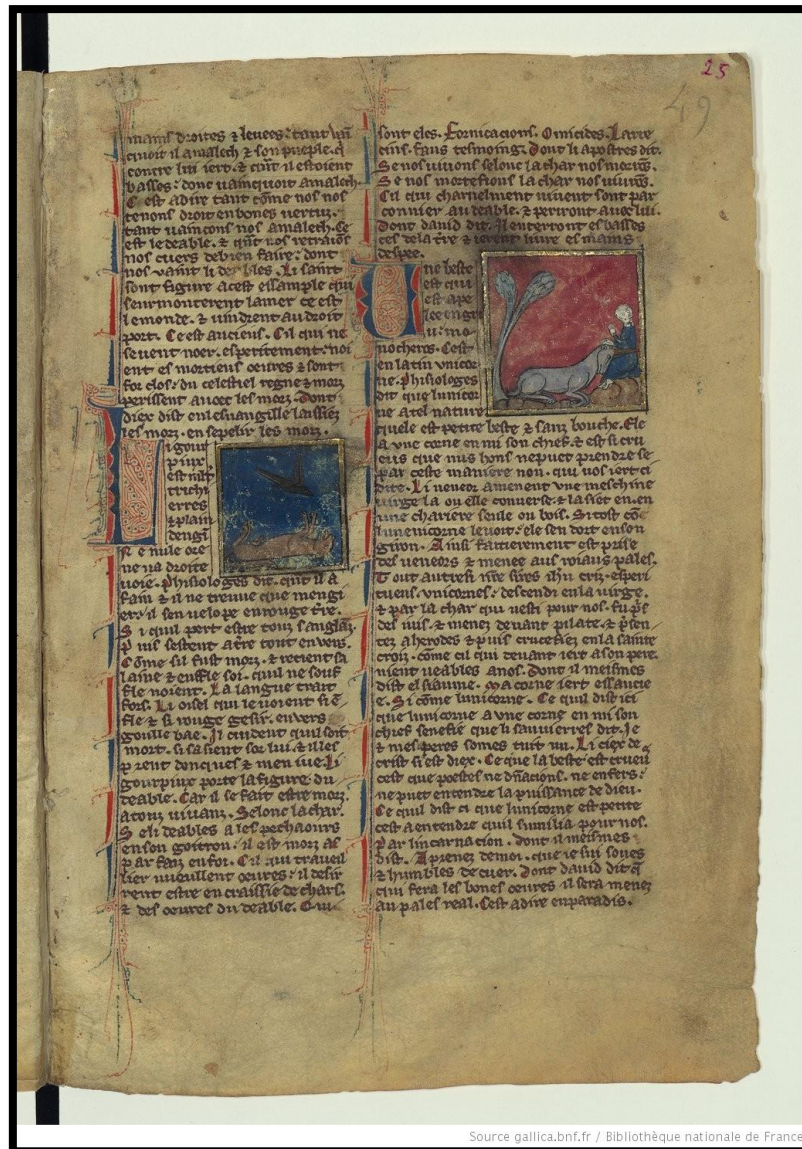 25
49
mains droites ⁊ levees: tant
contre lui iert. ⁊ estoient
basses: donc vainquoit amalech.
C est a dire tant come nos nos
tenons droit en bones vertuz.
tant vaincons nos amalech. Ce
est le deable. ⁊ nos retraions
nos cuers de bien faire: dont
sont figure a cest essample qui
seurmonterent la mer ce est
le monde. ⁊ vindrent au droit
port. Ce est auciens. Cil qui ne
sevent noer. esperitement: noi
ent es mortieus oevres ⁊ sont
for clos: du celestiel regne ⁊ morz
perissent avoec les morz. Dont
diex dist en levuangille laissiez
les morz. ensepelir les morz.
Li gour
piux
est
trichi
erres
⁊ plain
dengi
ne va droite
voie. Phisiologes dit. il a
fain ⁊ il ne treuve que mengi
er: il senvelope en rouge
S i quil pert estre touz sanglanz
P uis sestent a tout envers.
Come sil fust morz. ⁊ retient sa
laine ⁊ enfle soi. quil ne souf
fle noient. La langue trait
fors. Li oisel qui le voient
fle ⁊ si rouge gesir. envers
goulle bae. Il cuident quil soit
mort. si sasient sor lui. ⁊ il les
prent donques ⁊ menjue. Li
gourpiux porte la figure du
deable. Car il se fait estre morz.
a touz vivanz. Selonc la char.
S e li deables a les pecheours
en son goitron: il est morz as
par faiz en foi. Cil qui traveil
lier vueullent oevres: il desir
rent estre en craissie de chars.
⁊ des oevres du deable. Qui
sont eles. Fornicacions. Omicides. Larre
cins. faus tesmoing. Dont li apostres dit.
Se nos vivons selonc la char nos morrons.
S e nos mortefions la char nos vivrons.
Cil qui charnelment vivent sont par
connier au deable. ⁊ perront avoec lui.
Dont david dit. Il enterront es basses
ces de la tre ⁊ ierent livre es mains
despee.
Une beste
est qui
est ape
lee en gri
u: mo
nocheros. Cest
en latin vnicor
ne. Phisiologes
dit que lunicor
ne a tel nature
quele est petite beste ⁊ sanz bouche. Ele
a vne corne en mi son chief. ⁊ est si cru
eus que nus hons ne puet prendre se
par ceste maniere non. qui vos iert ci
dite. Li veneor amenent vne meschine
virge la ou elle converse. ⁊ la siet en. en
une chaiere seule ou bois. Si tost
lunicorne le voit: ele sendort en son
giron. Ainsi faitierement est prise
des veneors ⁊ menee aus roiaus pales.
Tout autresi esperi
tueus. vnicornes: descendi en la virge.
⁊ par la char qui vesti pour nos. fu pris
des juis. ⁊ menez devant pilate. ⁊ presen
tez a herodes ⁊ puis crucefiez en la sainte
croiz. come cil qui devant iert a son pere.
nient veables a nos. Dont il meismes
dist el siaume. Ma corne iert essaucie
e. Si come lunicorne. Ce quil dist ici
que lunicorne a vne corne en mi son
chief. senefie que li sauvierres dit. Je
⁊ mes peres somes tuit un. Li ciex de
crist si est diex. Ce que la beste est crueu
cest que poestes ne dnacions. ne enfers:
ne puet entendre la puissance de dieu.
Ce quil dist ci que lunicorne est petite
cest a entendre quil sumilia pour nos.
Par lincarnation. dont il meismes
dist. Aprenez de moi. que ie sui soues
⁊ humbles de cuer. Dont david dit
qui fera les bones oevres il sera menez
au pales real. Cest a dire en paradis.
Source gallica.bnf.fr / Bibliothèque nationale de France